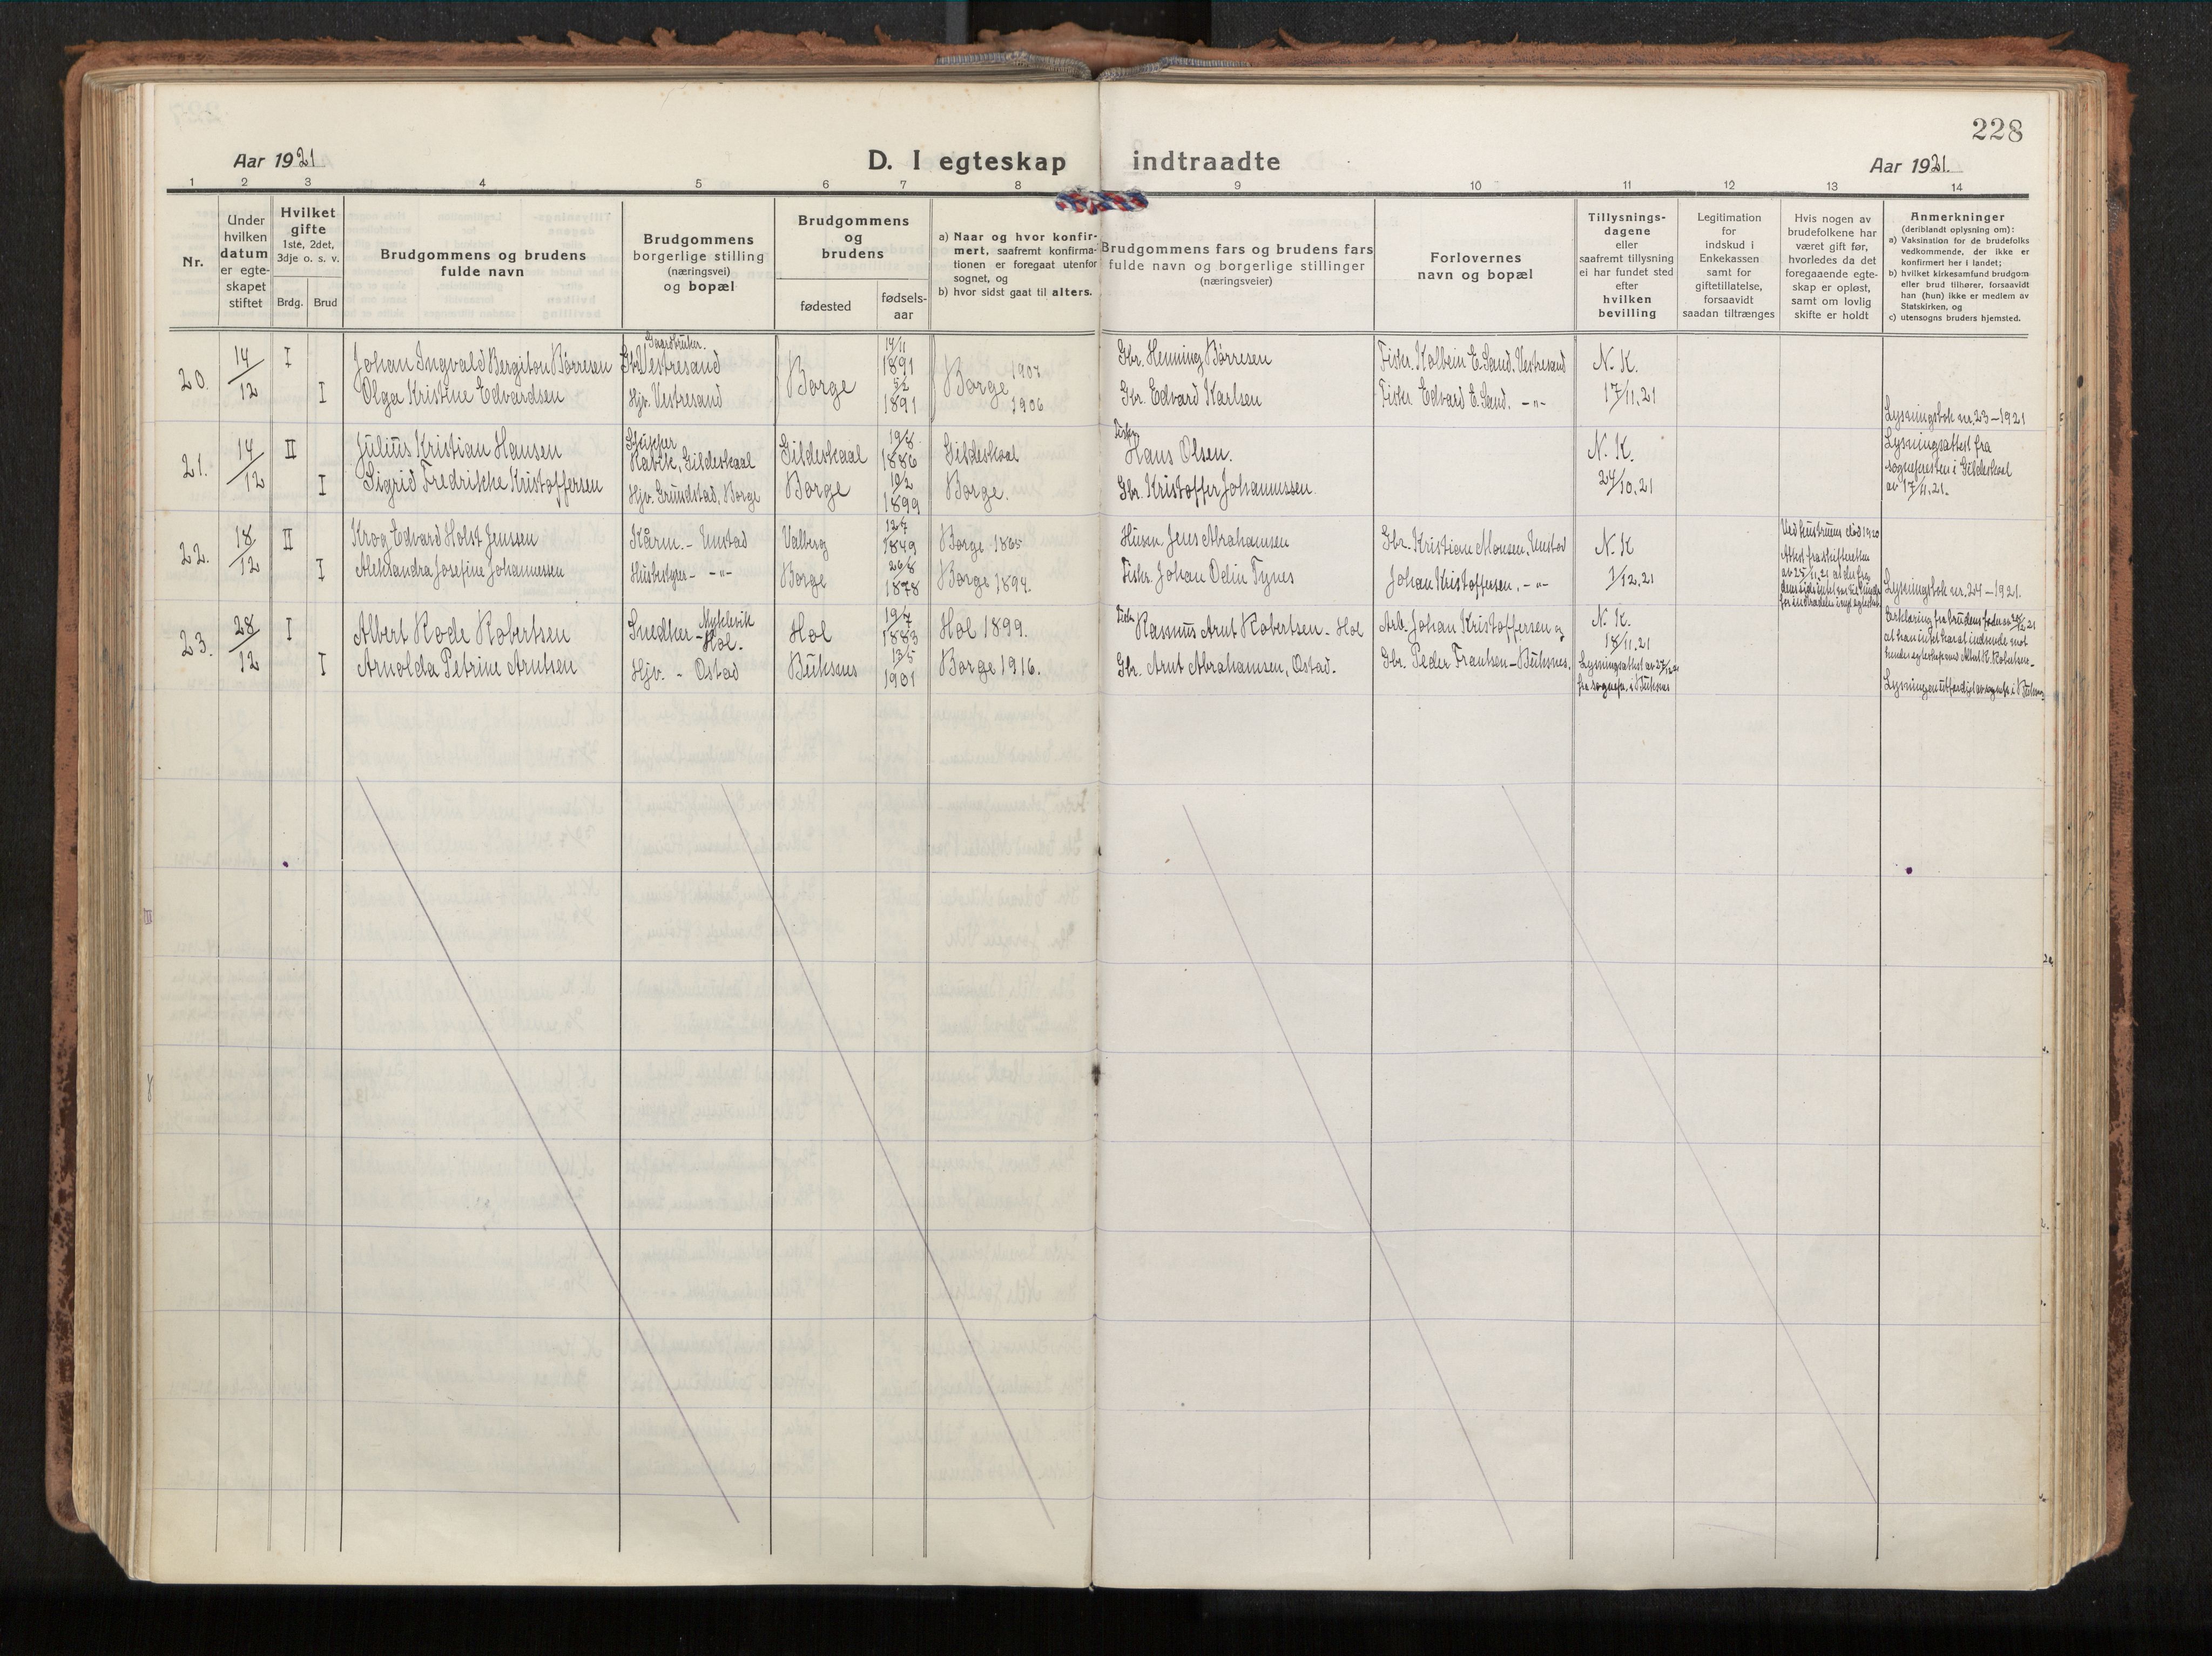 228
Aar 1921
D. I egteskap indtraadte
Aar 1921.
1 2 3 4 5 6 7 8 9 10 11 12 13 14
Nr.
Under
hvilken
datum
er egte-
skapet
stiftet
Hvilket
gifte
1ste, 2det,
3dje o. s. v.
Brdg. Brud
Brudgommens og brudens
fulde navn
Brudgommens
borgerlige stilling
(næringsvei)
og bopæl
Brudgommens
og
brudens
fødested
fødsels-
aar
a) Naar og hvor konfir-
mert, saafremt konfirma-
tionen er foregaat utenfor
sognet, og
b) hvor sidst gaat til alters.
Brudgommens fars og brudens fars
fulde navn og borgerlige stillinger
(næringsveier)
Forlovernes
navn og bopæl
Tillysnings-
dagene
eller
saafremt tillysning
ei har fundet sted
efter
hvilken
bevilling
Legitimation
for
indskud i
Enkekassen
samt for
giftetillatelse,
forsaavidt
saadan tiltrænges
Hvis nogen av
brudefolkene har
været gift før,
hvorledes da det
foregaaende egte-
skap er opløst,
samt om lovlig
skifte er holdt
Anmerkninger
(deriblandt oplysning om):
a) Vaksination for de brudefolks
vedkommende, der ikke er
konfirmert her i landet;
b) hvilket kirkesamfund brudgom
eller brud tilhører, forsaavidt
han (hun) ikke er medlem av
Statskirken, og
c) utensogns bruders hjemsted.
20. 14/12 I Johan Ingvald Bergiton Børresen Gaardbruker. Vestresand Borge 14/11 1891 Borge 1907 Gbr. Henning Børresen Fisker Kolbein E. Sand. Vestresand N. K.
I Olga Kristine Edvardsen Hjv. Vestresand 5/2 1891 1906 Gbr. Edvard Karlsen Fisker Edvard E. Sand. -"- 17/11.21
Lysningsbok nr. 23-1921
21. 14/12 II Julius Kristian Hansen Skipper Gildeskaal Gildeskaal 19/8 1886 Gildeskaal Fisker Hans Olsen. N. K.
I Sigrid Fredrikke Kristoffersen Hjv. Grundstad, Borge Borge 10/2 1899 Borge. Gbr. Kristoffer Johannessen 24/10.21
Lysningsattest fra
sognepresten i Gildeskaal
av 17/11.21.
22. 18/12 II Krog Edvard Holst Jensen Kårm. - Unstad Valberg 12/7 1849 Borge 1865 Husm. Jens Abrahamsen Gbr. Kristian Monsen, Unstad N. K
I Aleksandra Josefine Johannessen Husbestyrer - -"- Borge 26/8 1878 Borge 1894. Fisker. Johan Odin Tynes Johan Kristoffersen, -"- 1/12.21
Ved hustruens død 1920
Attest fra skifteretten
av 25/11.21
Lysningsbok nr. 24-1921.
23. 28/12 I Albert Rode Robertsen Snedker - Myklevik Hol. Hol 19/7 1883 Hol 1899. Fisker Rasmus Arnt Robertsen - Hol Arb. Johan Kristoffersen og N. K.
I Arnolda Petrine Arntsen Hjv. - Ostad Buksnes 13/5 1901 Borge 1916. Gbr. Arnt Abrahamsen, Ostad. Gbr. Peder Frantsen - Buksnes. 18/11.21
Lysningsattest av 27/12.21
fra sognepr. i Buksnes
Erklæring fra brudens far
at han intet har at indvende mot
hendes egteskap med Albert R. Robertsen.